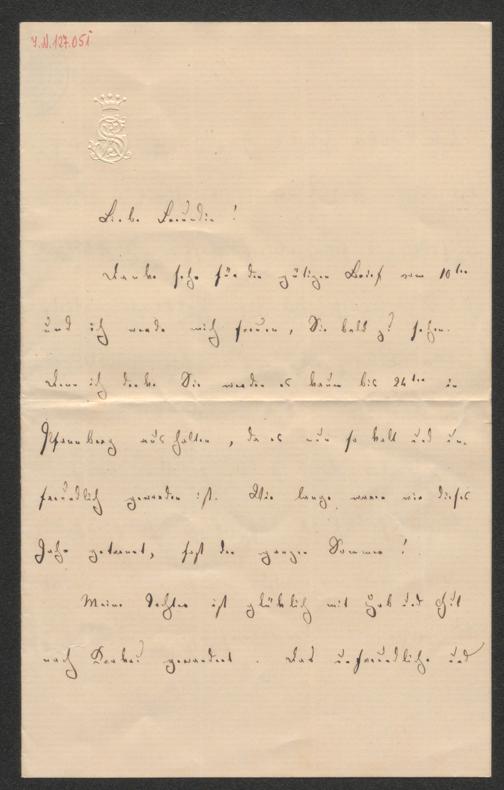 I.N. 127.051
Liebe Freundin !
Danke sehr für den gütigen Brief vom 10ten
und ich werde mich freuen, Sie bald zu sehen.
Denn ich denke Sie werden es kaum bis 24ten in
Pfannberg aushalten, da es nun so kalt und un-
freundlich geworden ist. Wie lange waren wir dieses
Jahr getrennt, fast den ganzen Sommer !
Meine Tochter ist glücklich mit Hab und Gut
nach gewandert. Das unfreundliche und